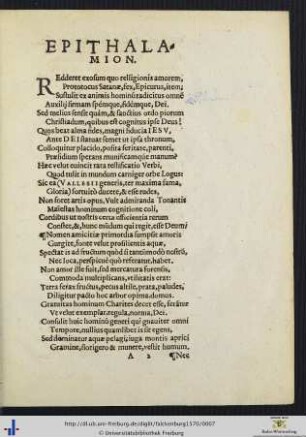 EPITHALA-
MION.
REdderet exosum quo relligionis amorem,
Prototocus Satanæ, fex, Epicurus, iton;
Sustulit ex animis hominũ radicitus omnẽ
Auxilij firmam spémque, fidémque, Dei.
Sed melius sensit quàm, & sanctius ordo piorum
Christiadum, quibus est cognitus ipse Deus!
Quos beat alma fides, magni fiducia IESV,
Ante DEI statuat sumet ut ipsa thronum,
Colloquitur placido, posita feritate, parenti,
Præsidium sperans munificamque manum?
Hæc velut euincit rata testificatio Verbi,
Quod tulit in mundum carniger orbe Logus:
Sic ea (VALLESII generis, ter maxima fama,
Gloria) fortuitò ducere, & esse rudes,
Non foret artis opus. Vult admiranda Tonantis
Maiestas hominum cognitione coli,
Cordibus ut nostris certa efficientia rerum
Constet, &, hunc mūdum qui regit, esse Deum?
¶Nomen amicitiæ primordia sumpsit amoris
Gurgite, fonte velut prosilientis aquæ,
Spectat is ad fructum quòd si tantimodò nostrũ,
Nec loca, perspicuè quò referatur, habet.
Non amor ille fuit, sed mercatura forensis,
Commoda multiplicans, vtilitatis erat:
Terra feras fructus, pecus altile, prata, paludes,
Diligitur pacto hoc arbor opima, domus.
Gratuitus hominum Charites decet esse, ferátur
Ve velut exemplar, regula, norma, Dei.
Consulit huic hominũ generi qui gnauiter omni
Tempore, nullius quamlibet is sit egens,
Sed dominatur aquæ pelagi, iuga montis aprici
Gramine, florigero & munere, vestit humum.
A 2 ¶Nec
http://dl.ub.uni-freiburg.de/diglit/falckenburg1570/0007
© Universitätsbibliothek Freiburg